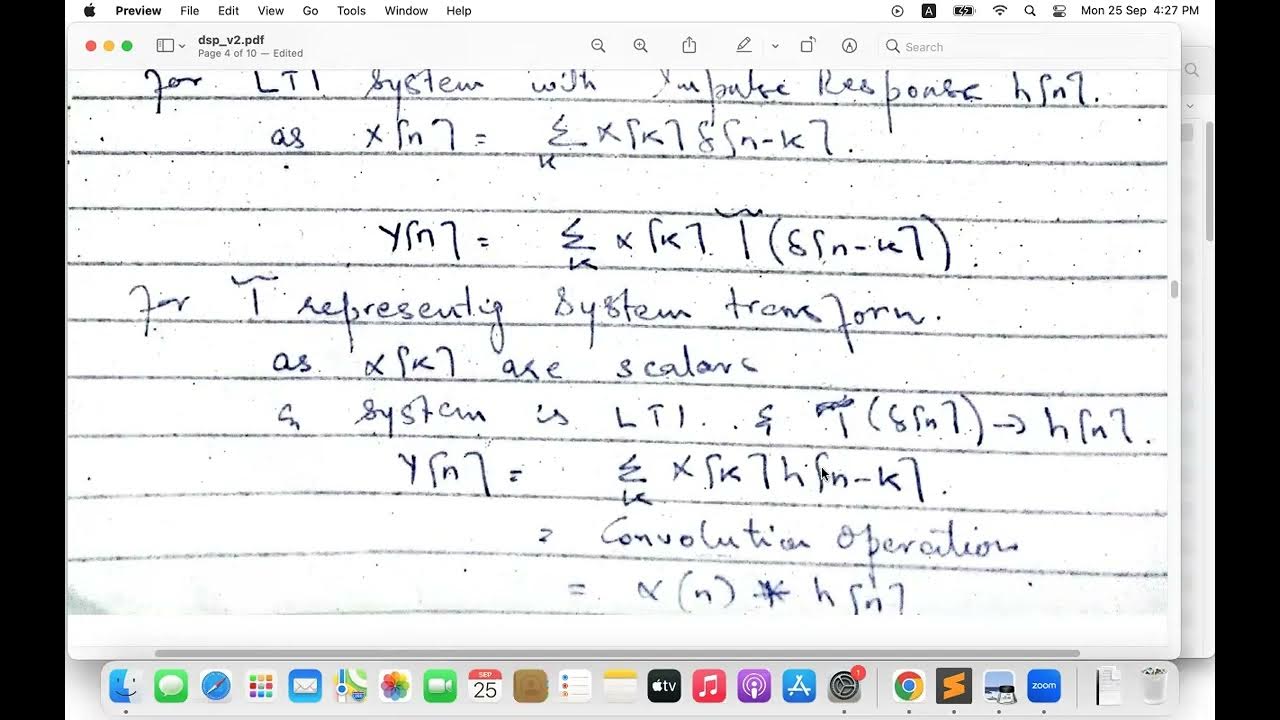 Preview File Edit View Go Tools Window Help A Mon 25 Sep 4:27 PM
dsp_v2.pdf
Page 4 of 10 — Edited
Search
for LTI system with Impulse Response h[n].
as x[n] = Σ x[k] δ[n-k].
k
y[n] = Σ x[k] T(δ[n-k]).
k
for T representig system transform.
as x[k] are scalars
& system is LTI. & T(δ[n]) → h[n].
y[n] = Σ x[k] h[n-k].
k
= Convolution operation
= x(n) * h[n]
SEP
25
tv
1
zoom